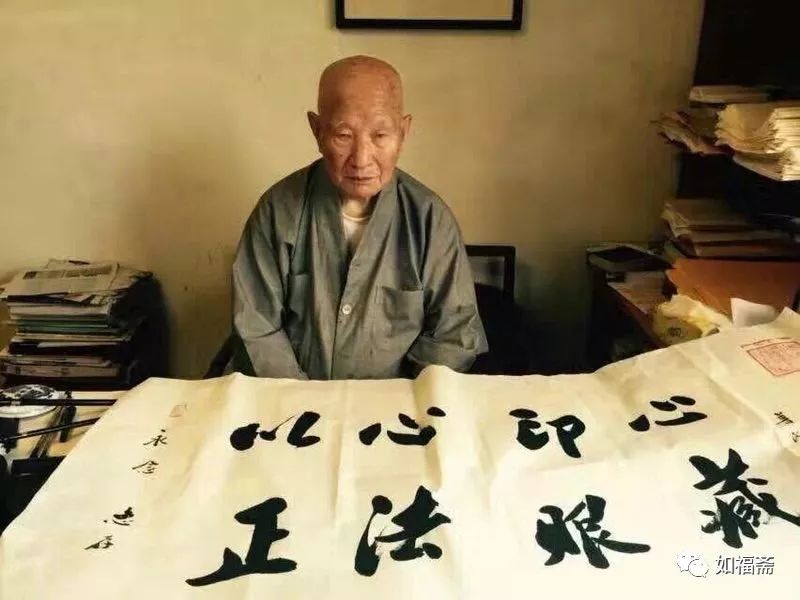 以心印心
正法眼藏
永念
如福斋